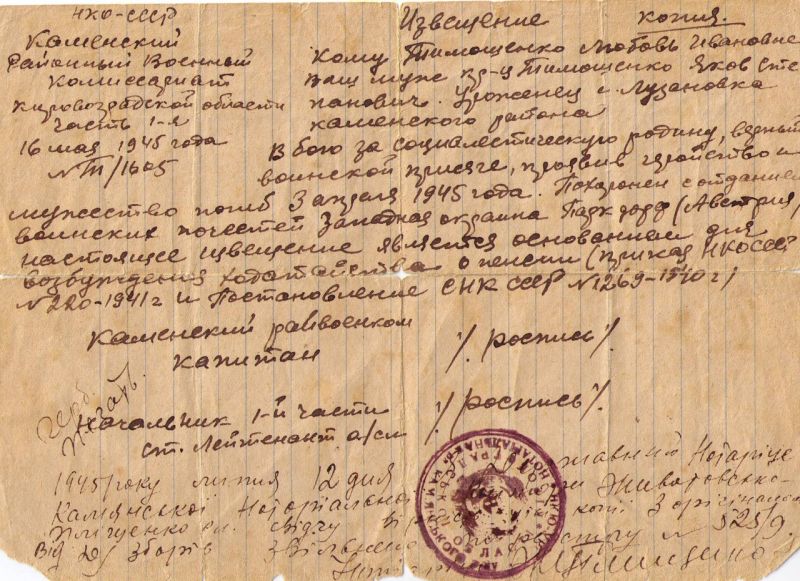 НКО-СССР
Каменский
Районный Военный
Комиссариат
Кировоградской области
Часть 1-я
16 мая 1945 года
№ III/1605
Извещение копия.
Кому Тимошенко Любовь Ивановне
Ваш муж кр-ц Тимошенко Яков Сте
панович. Уроженец с. Лузановка
каменского района
В бою за социалестическую родину, верный
воинской присяге, проявив геройство и
мужество погиб 3 апреля 1945 года. Похоронен с отданием
воинских почестей Западная окраина Парк дорф (Австрия)
настоящее извещение является основанием для
возбуждения ходатайства о пенсии (приказ НКОССС
№ 220-1941г и Постановление СНК СССР № 1269-1940 г/
Каменский райвоенком
капитан /. роспись /.
герб.
Начальник 1-й части
ст. Лейтенант а/сл /. роспись /.
1945 року липня 12 дня Нотаріус
Камянської Нотаріальної
свідчу копії З орігіналом
Від Зборів Звільнено № 525/9.